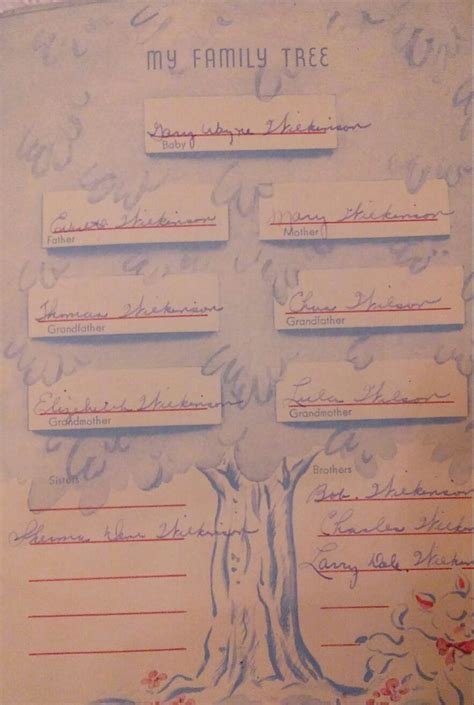 MY FAMILY TREE
Gary Wayne Wilkinson
Baby
Wilkinson
Father
Mary Wilkinson
Mother
Thomas Wilkinson
Grandfather
Chas Wilson
Grandfather
Elizabeth Wilkinson
Grandmother
Lula Wilson
Grandmother
Sisters
Wilkinson
Brothers
Bob. Wilkinson
Charles Wilk
Larry Dale. Wilkin